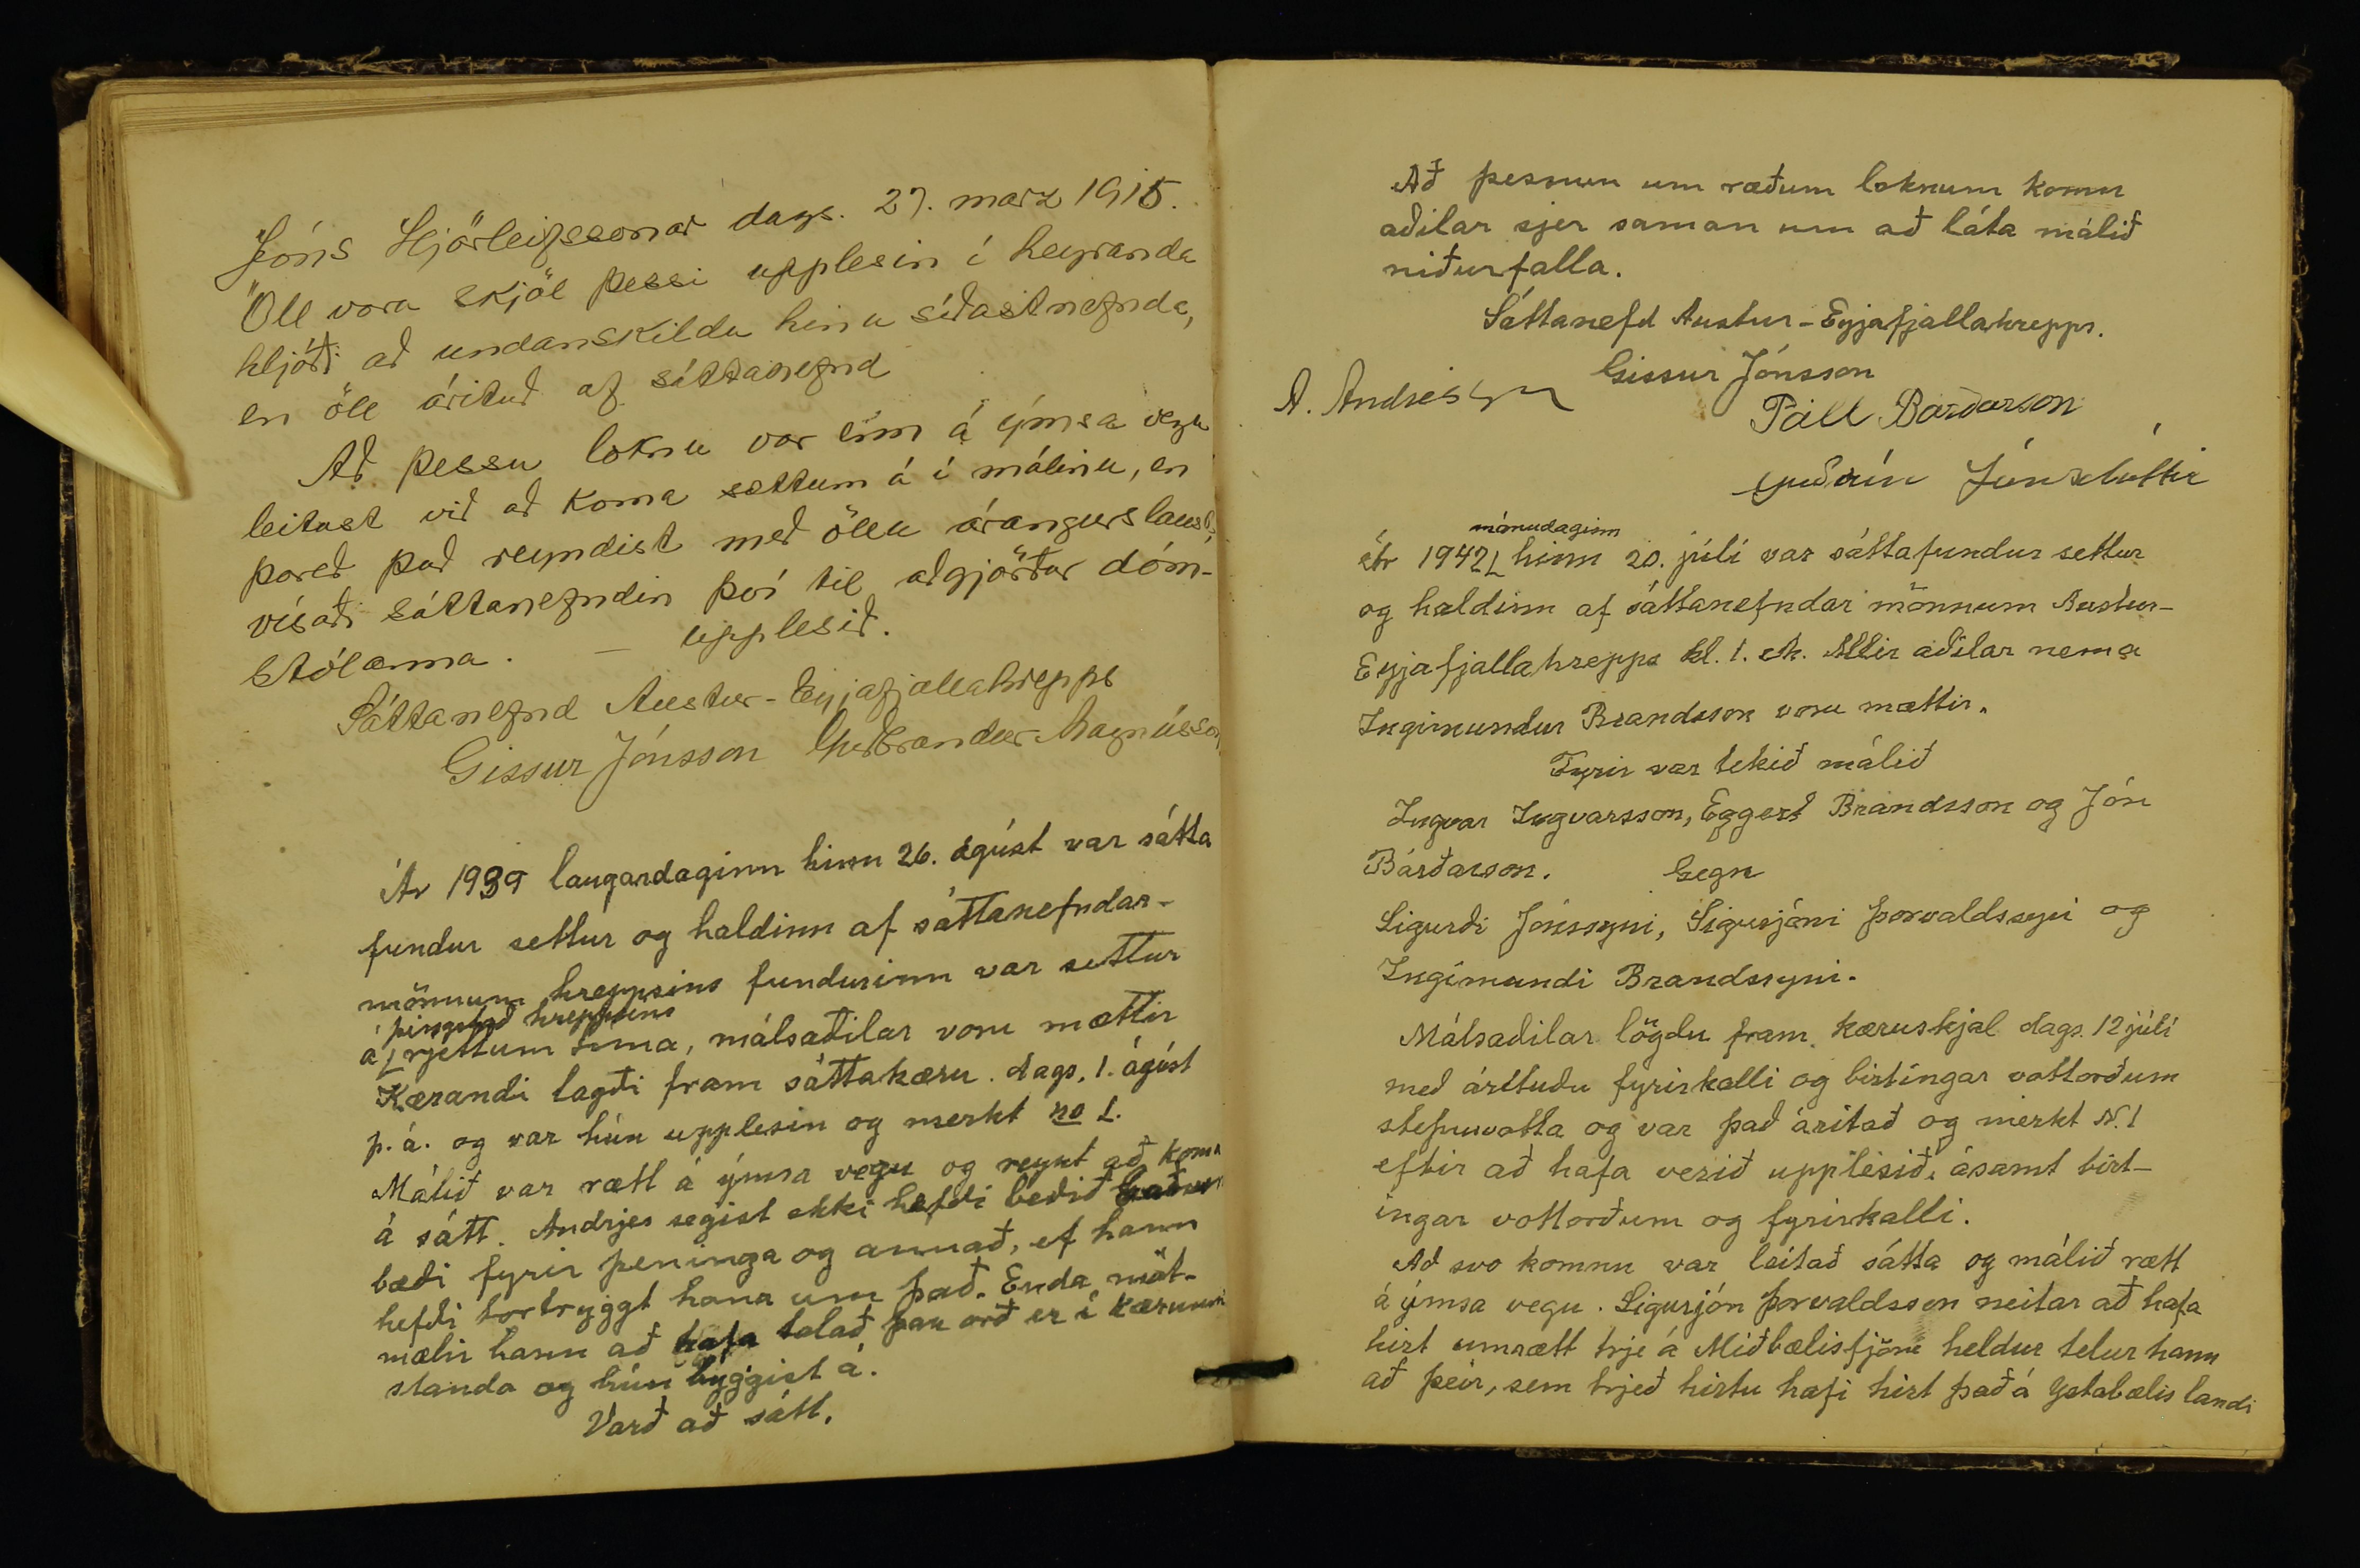 Jóns Hjörleifssonar dags. 27. marz 1915.
Öll voru skjöl þessi upplesin í heyranda
hljóði að undanskildu hinu síðastnefnda,
en öll árituð af sáttanefnd
Að þessu loknu var enn á ýmsa vegu
leitast við að koma sættum á í málinu, en
þareð það reyndist með öllu árangurslaust,
vísaði sáttanefndin því til aðgjörðar dóm-
stólanna. — upplesið.
Sáttanefnd Austur-Eyjafjallahrepps
Gissur Jónsson Guðbrandur Magnússon
Ár 1939 laugardaginn hinn 26. ágúst var sátta
fundur settur og haldinn af sáttanefndar-
mönnum hreppsins fundurinn var settur
þingstað hreppsins
á rjettum tíma, málsaðilar voru mættir
Kærandi lagði fram sáttakæru. dags. 1. ágúst
þ.á. og var hún upplesin og merkt no 1.
Málið var rætt á ýmsa vegu og reynt að koma
á sátt. Andrjes segist ekki hefði beðið
bæði fyrir peninga og annað, ef hann
hefði tortryggt hana um það. Enda mót-
mælir hann að hafa talað þau orð er í kærunni
standa og hún byggist á.
Varð að sátt.
Að þessum um ræðum loknum komu
aðilar sjer saman um að láta málið
niðurfalla.
Sáttanefd Austur-Eyjafjallahrepps.
Gissur Jónsson
A. Andrésson
Páll Bárðarson
Guðrún Jónsdóttir
mánudaginn
Ár 1942 hinn 20. júlí var sáttafundur settur
og haldinn af sáttanefndar mönnum Austur-
Eyjafjallahrepps kl. 1. e.h. Allir aðilar nema
Ingimundur Brandsson voru mættir.
Fyrir var tekið málið
Ingvar Ingvarsson, Eggert Brandsson og Jón
Bárðarson. Gegn
Sigurði Jónssyni, Sigurjóni Þorvaldssyni og
Ingimundi Brandssyni.
Málsaðilar lögðu fram kæruskjal dags. 12 júlí
með árituðu fyrirkalli og birtingar vottorðum
stefnuvotta og var það áritað og merkt N. 1
eftir að hafa verið upplesið, ásamt birt-
ingar vottorðum og fyrirkalli.
Að svo komnu var leitað sátta og málið rætt
á ýmsa vegu. Sigurjón Þorvaldsson neitar að hafa
hirt umrætt trje á Miðbælisfjöru heldur telur hann
að þeir, sem trjeð hirtu hafi hirt það á Ystabælis landi